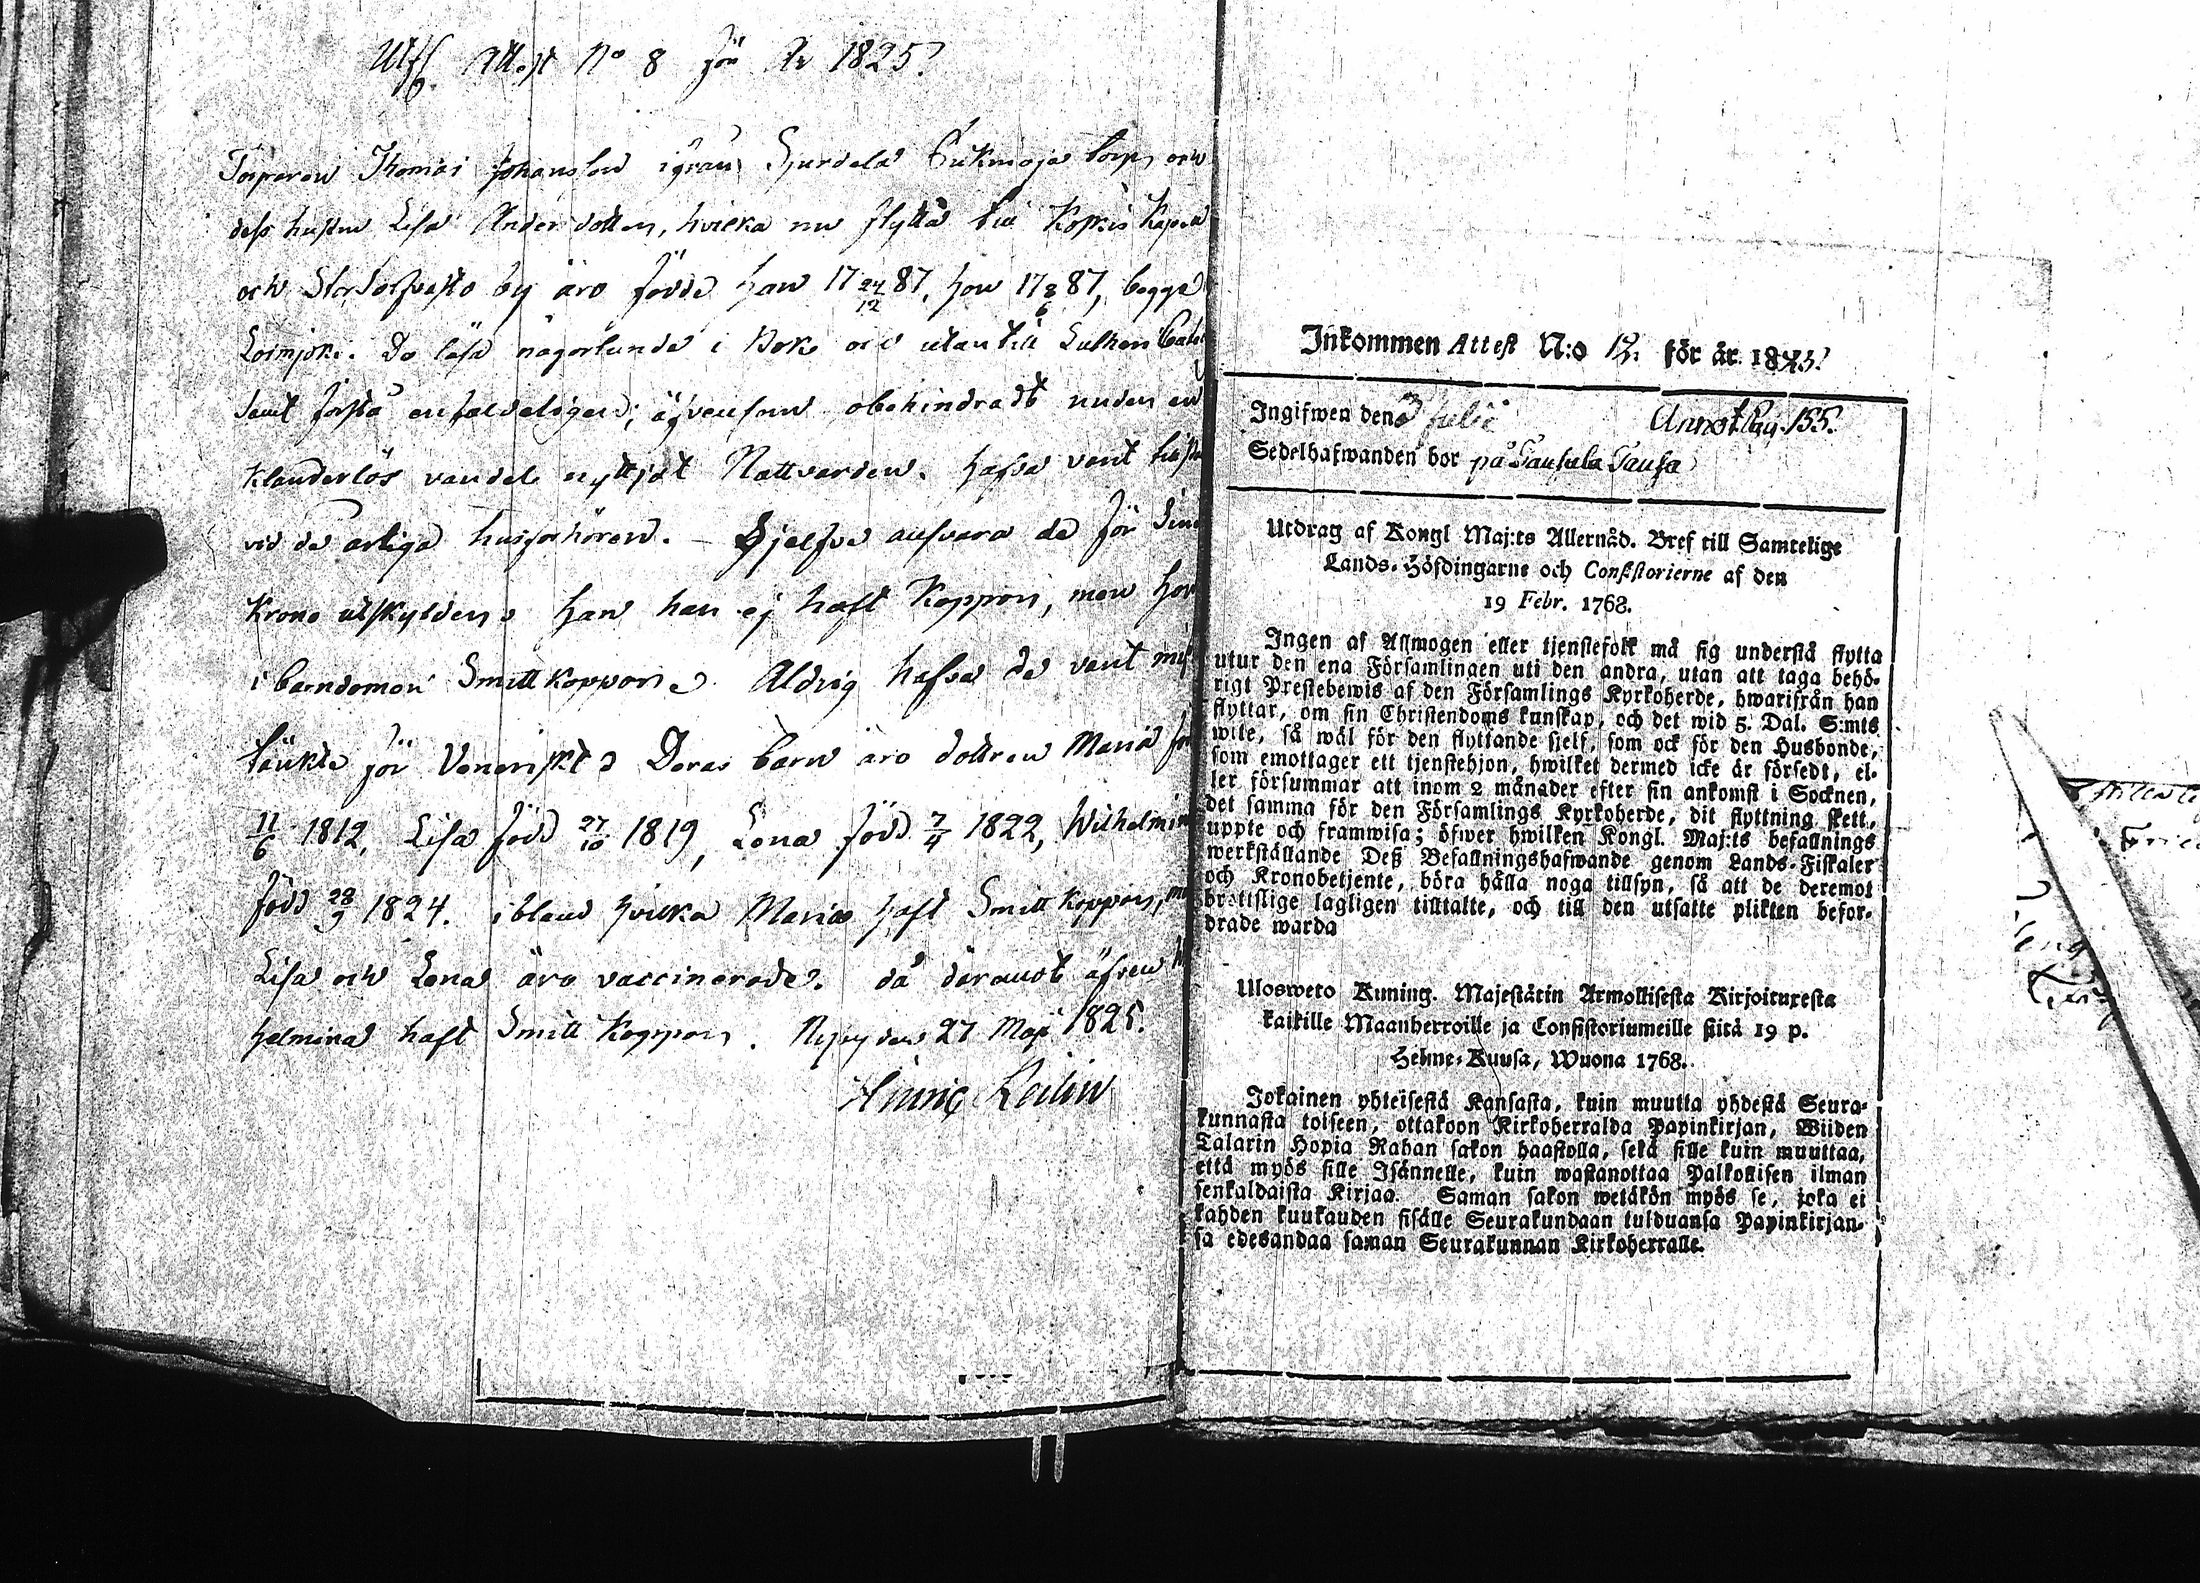 Utfl. Attest No 8 för År 1825.
Torparen Thomas Johansson ifrån torp och
dess hustru Lisa Anders dotter, hvilka nu flytta till Koskis Kapell
och by äro födde han 17 24/12 87, hon 17 8/6 87, begge
Loimjoki. De läsa någorlunda i Bok och utantill Lutheri Catec
samt förstå enfaldeligen; äfvensom obehindradt under en
klanderlös vandel nyttjat Nattvarden. hafva varit
vid de årliga husförhören. – Sjelfve ansvara de för sina
Krono utskylder. han har ej haft Koppor, men hon
i barndomen Smittkoppor. Aldrig hafva de varit miss
tänkte för Veneriskt. Deras barn äro dottren Maria född
11/6 1812, Lisa född 27/10 1819, Lena född 7/4 1822, Wilhelmina
född 28/9 1824. ibland hvilka Maria haft Smittkoppor, men
Lisa och Lena äro vaccinerade. då däremot äfven Wil
helmina haft Smittkoppor. Nypy den 27 Maji 1825.
Inkommen Attest N:o 12. för år 1825.
Ingifwen den 3 Julii Annot. Pag. 155.
Sedelhafwanden bor på Tausala Tausa
Utdrag af Kongl Maj:ts Allernåd. Bref till Samtelige
Lands-Höfdingarne och Consistorierne af den
19 Febr. 1768.
Ingen af Allmogen eller tjenstefolk må sig understå flytta
utur den ena Församlingen uti den andra, utan att taga behö-
rigt Prestebewis af den Församlings Kyrkoherde, hwarifrån han
flyttar, om sin Christendoms kunskap, och det wid 5. Dal. S:mts
wite, så wäl för den flyttande sjelf, som ock för den Husbonde,
som emottager ett tjenstehjon, hwilket dermed icke är försedt, el-
ler försummar att inom 2 månader efter sin ankomst i Socknen,
det samma för den Församlings Kyrkoherde, dit flyttning skett,
uppte och framwisa; öfwer hwilken Kongl. Maj:ts befallnings
werkställande Deß Befallningshafwande genom Lands-Fiskaler
och Kronobetjente, böra hålla noga tillsyn, så att de deremot
brotislige lagligen tilltalte, och till den utsatte plikten befor-
drade warda
Ulosweto Kuning. Majestätin Armollisesta Kirjoituresta
kaikille Maanherroille ja Consistoriumeille siitä 19 p.
Helme-Kuusa, Wuona 1768.
Jokainen yhteisestä Kansasta, kuin muutta yhdestä Seura-
kunnasta toiseen, ottakoon Kirkoherralda Papinkirjan, Wiiden
Talarin Hopia Rahan sakon haastolla, sekä sille kuin muuttaa,
että myös sille Isännelle, kuin wastanottaa Palkollisen ilman
senkaldaista Kirjaa. Saman sakon wetäkön myös se, joka ei
kahden kuukauden sisälle Seurakundaan tulduansa Papinkirjan-
sa edesandaa saman Seurakunnan Kirkoherralle.